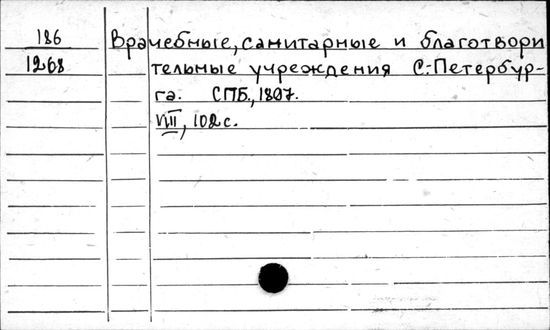 186
1268
Врачебные, санитарные и благотвори
тельные учреждения С.-Петербур-
га. СПБ., 1897.
VIII, 102 с.